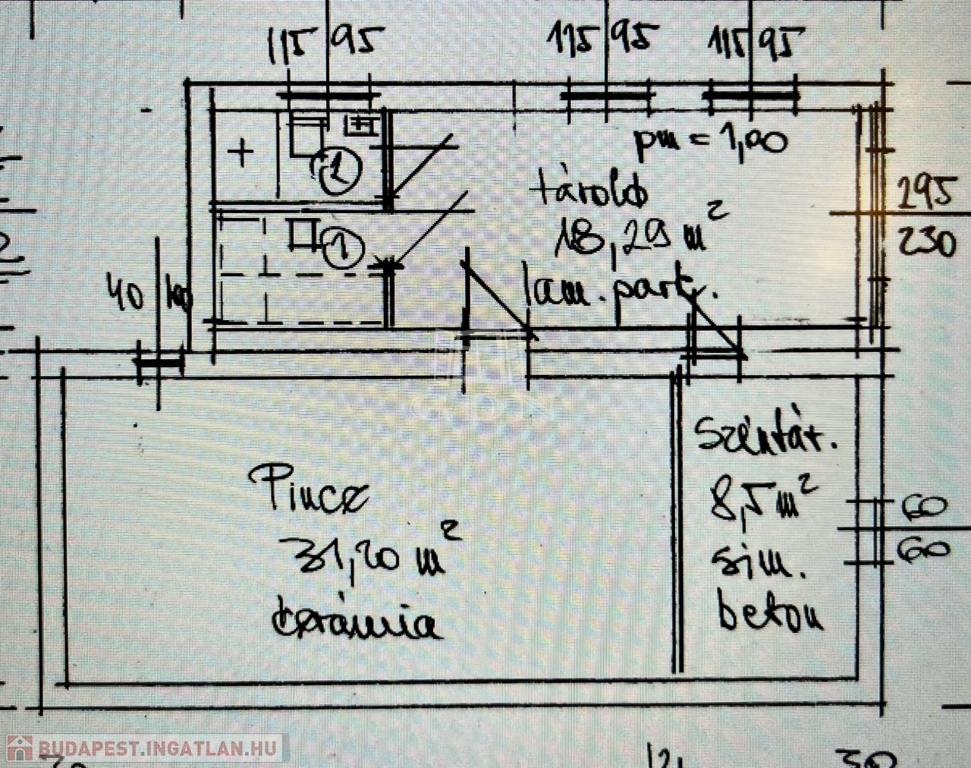 115 95 115 95 115 95
pm = 1,00
1
tároló
18,29 m²
lam. part.
1
195
230
40
Pince
31,20 m²
kerámia
Széntár.
8,5 m²
sim.
beton
60
60
BUDAPEST.INGATLAN.HU
30